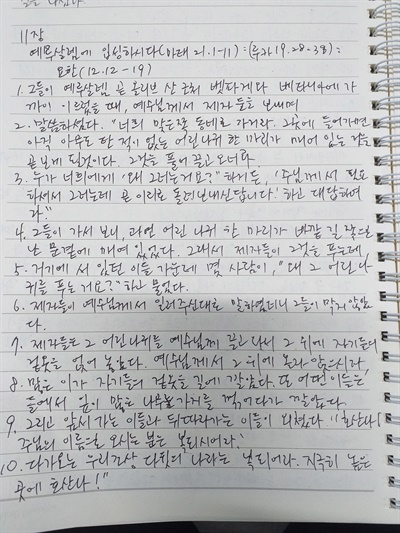 11장
예루살렘에 입성하시다(마태 21.1-11):(루카19.28-38):
요한(12.12-19)
1. 그들이 예루살렘 곧 올리브 산 근처 벳파게와 베타니아에 가
까이 이르렀을 때, 예수님께서 제자 둘을 보내며
2. 말씀하셨다. "너희 맞은쪽 동네로 가거라. 그곳에 들어가면
아직 아무도 탄 적이 없는 어린나귀 한 마리가 매여 있는 것을
곧 보게 될것이다. 그것을 풀어 끌고 오너라.
3. 누가 너희에게 '왜 그러는거요?' 하거든, '주님께서 필요
하셔서 그러는데 곧 이리로 돌려보내신답니다.' 하고 대답하여
라."
4. 그들이 가서 보니, 과연 어린 나귀 한 마리가 바깥 길 쪽으로
난 문 곁에 매여 있었다. 그래서 제자들이 그것을 푸는데
5. 거기에 서 있던 이들 가운데 몇 사람이, "왜 그 어린 나
귀를 푸는 거요?" 하고 물었다.
6. 제자들이 예수님께서 일러주신대로 말하였더니 그들이 막지 않았
다.
7. 제자들은 그 어린나귀를 예수님께 끌고 나서 그 위에 자기들의
겉옷을 얹어 놓았다. 예수님께서 그 위에 올라 앉으시자
8. 많은 이가 자기들의 겉옷을 길에 깔았다. 또 어떤이들은
들에서 잎이 많은 나뭇가지를 꺾어다가 깔았다.
9. 그리고 앞서 가는 이들과 뒤따라가는 이들이 외쳤다. "호산나!
주님의 이름으로 오시는 분은 복되시어라.
10. 다가오는 우리 조상 다윗의 나라는 복되어라. 지극히 높은
곳에 호산나!"